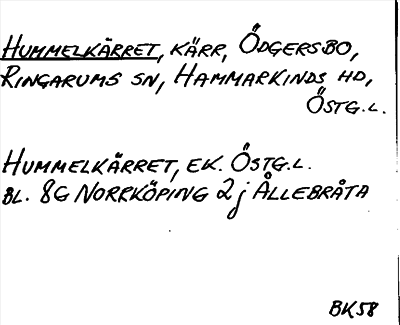 HUMMELKÄRRET, KÄRR, ÖDGERSBO,
RINGARUMS SN, HAMMARKINDS HD,
ÖSTG.L.
HUMMELKÄRRET, EK. ÖSTG.L.
BL. 8G NORRKÖPING 2j ÅLLEBRÅTA
BK58